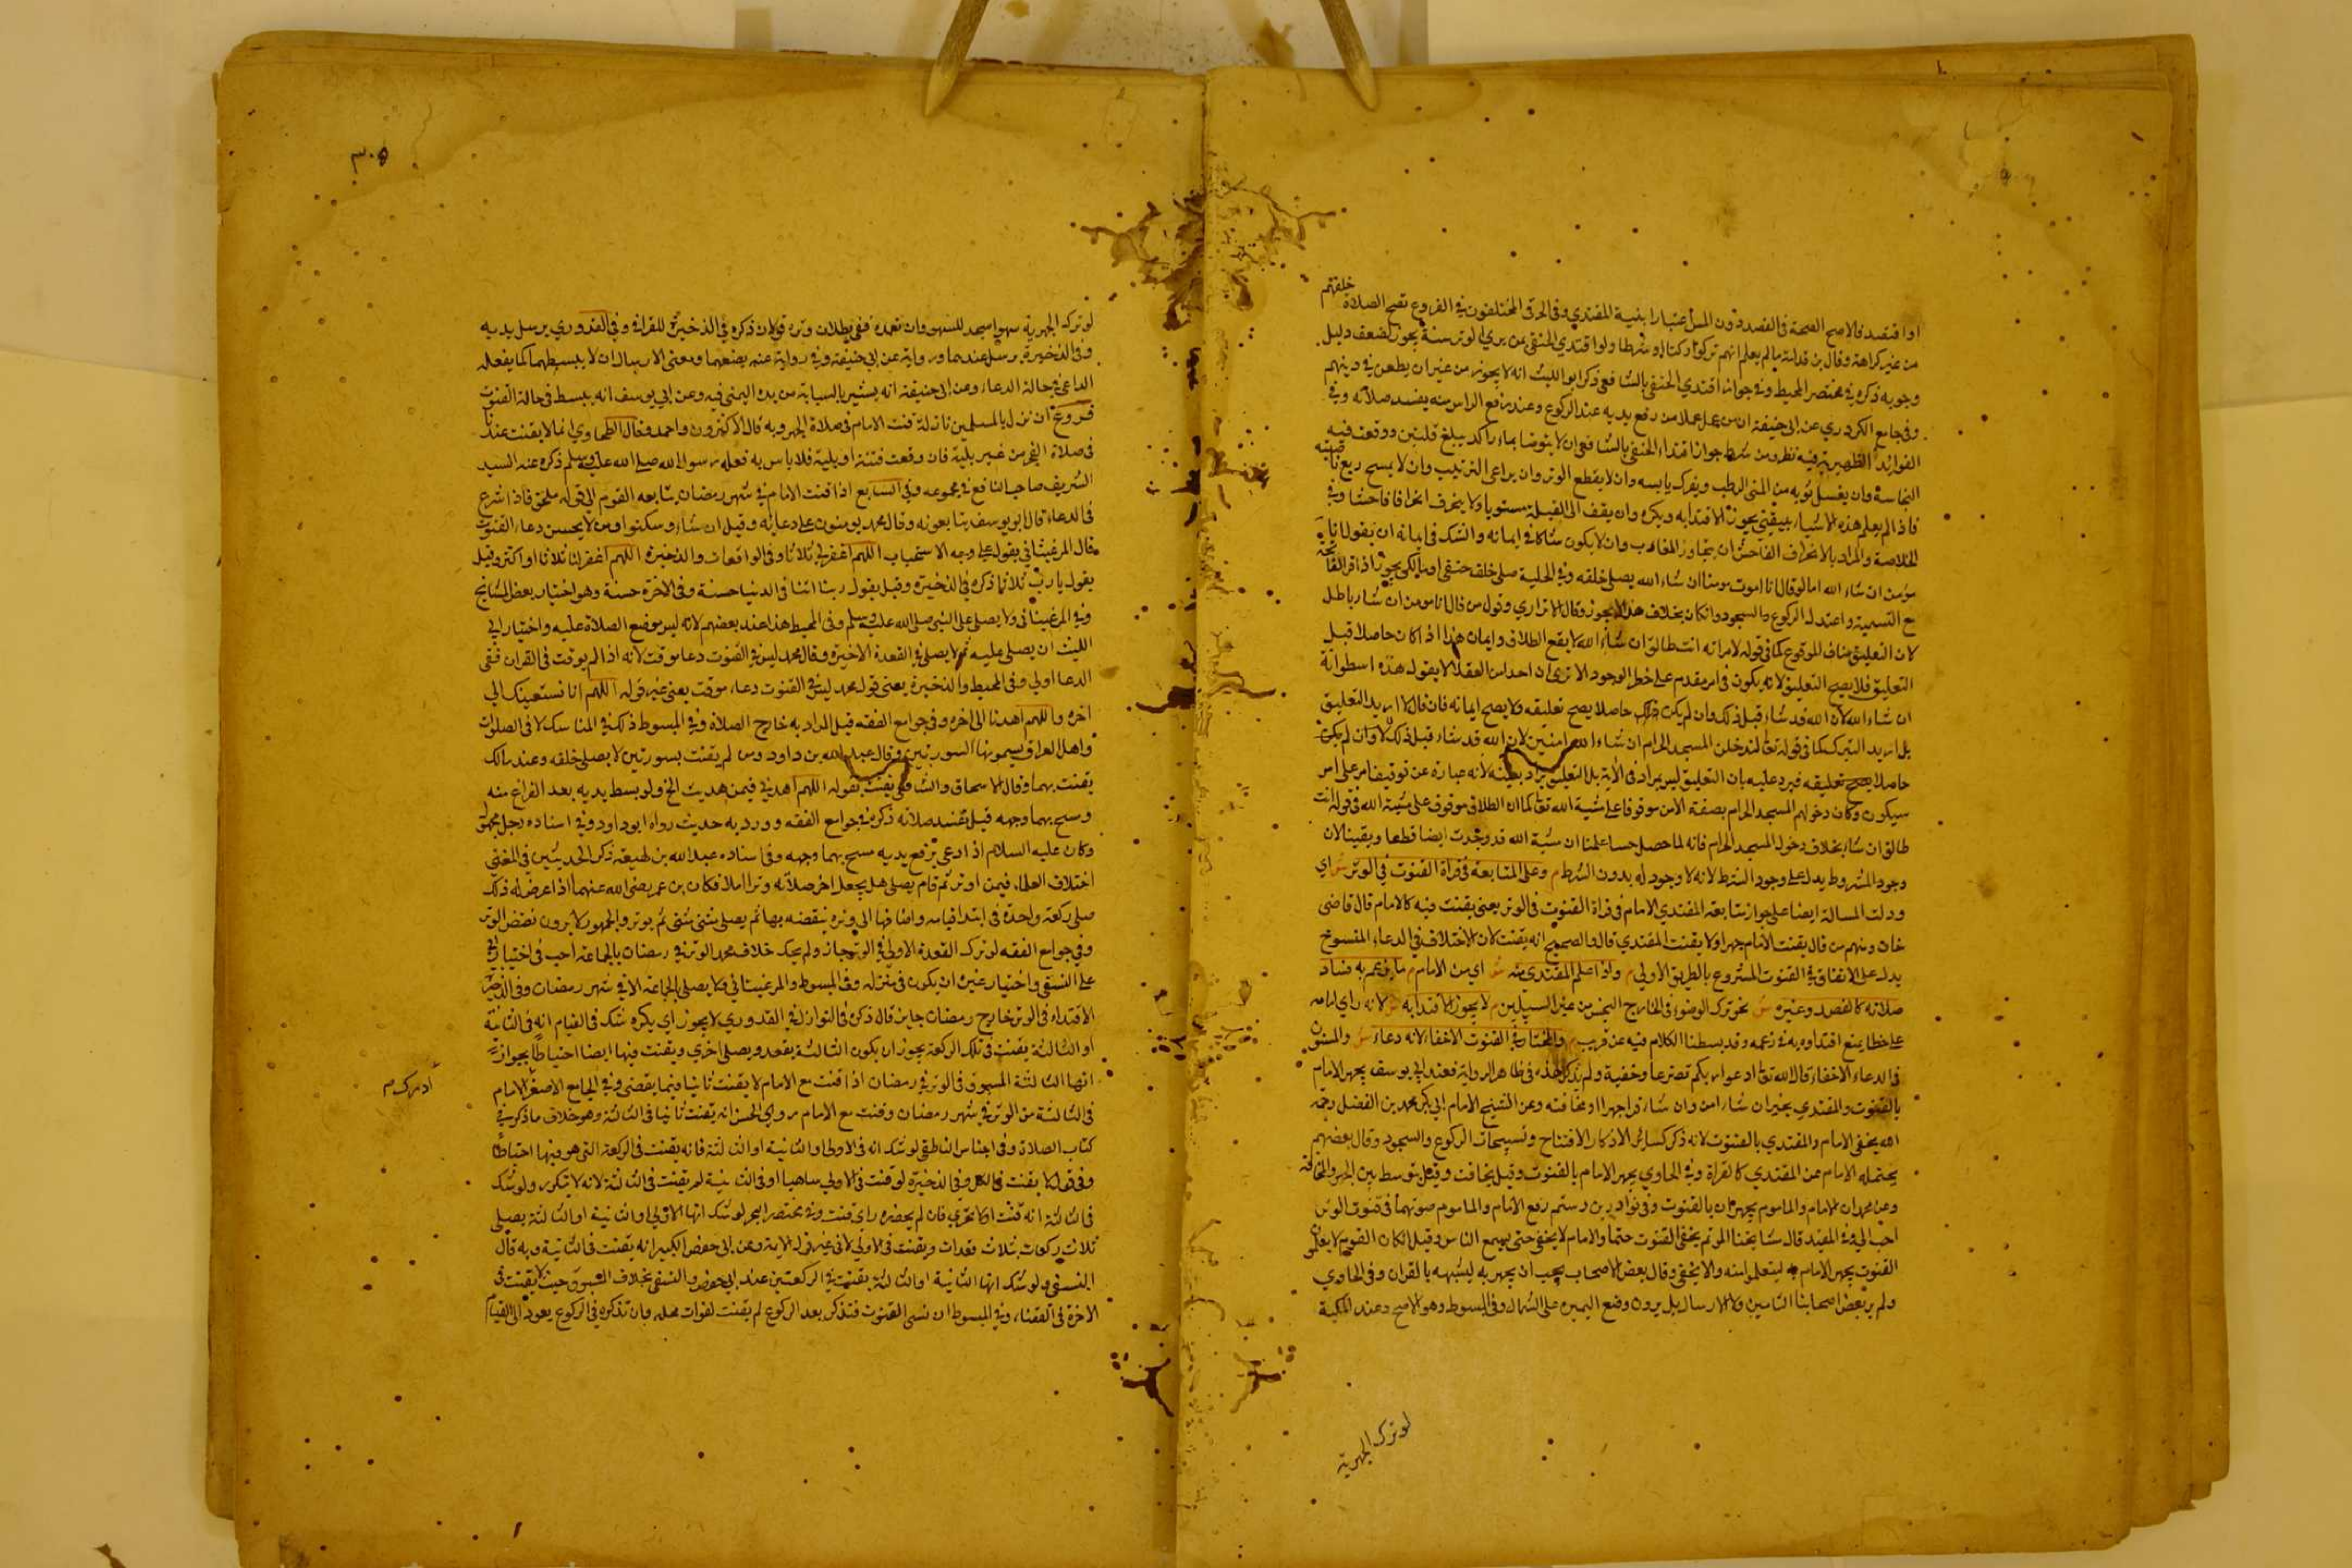 او افتصد فالاصح الصحة في الفصد دون المس اعتبارا بنية المقتدي وفي الحرقي المختلفون في الفروع تصح الصلاة خلفهم
من غير كراهة وقال بن قدامة ما لم يعلم انهم تركوا ركنا او شرطا ولو اقتدي الحنفي بمن يري الوتر سنة يجوز لضعف دليل
وجوبه ذكره في مختصر المحيط وفي جواز اقتدي الحنفي بالشافعي ذكر ابو الليث انه لا يجوز من غير ان يطعن في دينهم
وفي جامع الكردري عن ابي حنيفة ان من عمل عملا من رفع يديه عند الركوع وعند رفع الراس منه يفسد صلاته وفي
الفوائد الظهيرية فيه نظر ومن شرط جواز اقتداء الحنفي بالشافعي ان لا يتوضا بماء راكد يبلغ قلتين ووقعت فيه
النجاسة وان يغسل ثوبه من المني الرطب ويفرك يابسه وان لا يقطع الوتر وان يراعى الترتيب وان لا يمسح ربع ناصيته
فاذا لم يعلم هذه الاشياء بيقين يجوز الاقتداء به ويكره وان يقف الى القبلة مستويا ولا ينحرف انحرافا فاحشا وفي
الخلاصة والمراد بالانحراف الفاحش ان يتجاوز المغارب وان لا يكون شاكا في ايمانه والشك في ايمانه ان يقول انا
مومن ان شاء الله اما لو قال انا اموت مومنا ان شاء الله يصلي خلفه وفي الحلية صلى خلف حنفي او مالكي يجوز اذا قرا الفاتحة
مع التسمية واعتدل في الركوع والسجود وان كان بخلاف هذا لا يجوز وقال الاتراري وقول من قال انا مومن ان شاء باطل
لان التعليق مناف للوقوع كما في قوله لامراته انت طالق ان شاء الله لا يقع الطلاق وايمان هذا اذا كان حاصلا قبل
التعليق فلا يصح التعليق لانه يكون في امر مقدم على خطر الوجود الا ترى ان احدا من العقلا لا يقول هذه اسطوانة
ان شاء الله لان الله قد شاء قبل ذلك وان لم يكن حاصلا يصح تعليقه ولا يصح ايمانه فان قال لا اريد التعليق
بل اريد التبرك كما في قوله تعالى لتدخلن المسجد الحرام ان شاء الله امنين لان الله قد شاء قبل ذلك وان لم يكن
حاصلا يصح تعليقه فيرد عليه بان التعليق ليس بمراد في الاية بل التعليق يراد بعينه لانه عبارة عن توقيف امر على امر
سيكون وكان دخولهم المسجد الحرام بصفة الامن موقوفا على مشية الله تعالى كما ان الطلاق موقوف على مشية الله في قوله انت
طالق ان شاء بخلاف دخول المسجد الحرام فانه لما حصل حسا علمنا ان مشية الله قد وجدت ايضا قطعا ويقينا لان
وجود المشروط يدل على وجود الشرط لانه لا وجود له بدون الشرط م وعلى المتابعة في قراة القنوت في الوتر ش اي
ودلت المسالة ايضا على جواز متابعة المقتدي الامام في قراة القنوت في الوتر يعني يقنت فيه كالامام قال قاضي
خان ومنهم من قال يقنت الامام جهرا ولا يقنت المقتدي قال والصحيح انه يقنت لان الاختلاف في الدعاء المنسوخ
يدل على الاتفاق في القنوت المشروع بالطريق الاولي م واذا علم المقتدي منه ش اي من الامام م ما يزعم به فساد
صلاته كالفصد وغيره ش نحو ترك الوضوء في الخارج النجس من غير السبيلين م لا يجوز الاقتداء به ش لانه راي امامه
على خطا يمنع اقتداوه به في زعمه وقد بسطنا الكلام فيه عن قريب م والمختار في القنوت الاخفاء لانه دعاء ش والمسنون
في الدعاء الاخفاء قال الله تعالى ادعوا ربكم تضرعا وخفية ولم يذكر هذه في ظاهر الرواية فعند ابي يوسف يجهر الامام
بالقنوت والمقتدي بخير ان شاء امن وان شاء قرا جهرا او مخافته وعن الشيخ الامام ابي بكر محمد بن الفضل رحمه
الله يخفي الامام والمقتدي بالقنوت لانه ذكر كسائر الاذكار الافتتاح وتسبيحات الركوع والسجود وقال بعضهم
يحتمله الامام عن المقتدي كالقراة وفي الحاوي يجهر الامام بالقنوت وقيل يخافت وقيل يتوسط بين الجهر والمخافة
وعن محمد ان الامام والماموم يجهران بالقنوت وفي نوادر بن رستم رفع الامام والماموم صوتهما في قنوت الوتر
احب الي وفي المفيد قال مشايخنا المؤتم يخفي القنوت حتما والامام لا يخفي حتى يسمع الناس وقيل ان كان القوم لا يعلمون
القنوت يجهر الامام به ليتعلموا منه والا يخفي وقال بعض الاصحاب يجب ان يجهر به لشبهه بالقران وفي الحاوي
ولم ير بعض اصحابنا التامين ولا الارسال بل يرون وضع اليمين على الشمال وفي المبسوط وهو الاصح وعند المالكية
لو ترك الجهرية
٣٠٥
لو ترك الجهرية سهوا سجد للسهو وان تعمده ففي بطلان وتره قولان ذكره في الذخيرة للقرافي وفي القدوري يرسل يديه
وفي الذخيرة يرسل عندهما ورواية عن ابي حنيفة وفي رواية عنه يضعهما ومعنى الارسال ان لا يبسطهما كما يفعله
الداعي في حالة الدعاء وعن ابي حنيفة انه يشير بالسبابة من يده اليمنى فيه وعن ابي يوسف انه يبسط في حالة القنوت
فروع ان نزل بالمسلمين نازلة قنت الامام في صلاة الجهر وبه قال الاكثرون واحمد وقال الطحاوي انما لا يقنت عندنا
في صلاة الفجر من غير بلية فان وقعت فتنة او بلية فلا باس به فعله رسول الله صلى الله عليه وسلم ذكره عنه السيد
الشريف صاحب النافع في مجموعه وفي السابع اذا قنت الامام في شهر رمضان يتابعه القوم الى قوله ملحق فاذا شرع
في الدعاء قال ابو يوسف يتابعونه وقال محمد يومنون على دعايه وقيل ان شاؤ وسكتوا ومن لا يحسن دعاء القنوت
قال المرغيناني يقول على وجه الاستحباب اللهم اغفر لي ثلاثا وفي الواقعات والذخيرة اللهم اغفر لنا ثلاثا او اكثر وقيل
يقول يا رب ثلاثا ذكره في الذخيرة وقيل يقول ربنا اتنا في الدنيا حسنة وفي الاخرة حسنة وهو اختيار بعض المشايخ
وفي المرغيناني ولا يصلي على النبي صلى الله عليه وسلم وفي المحيط هذا عند بعضهم لانه ليس موضع الصلاة عليه واختيار ابي
الليث ان يصلي عليه ثم لا يصلي في القعدة الاخيرة وقال محمد ليس في القنوت دعا موقت لانه اذا لم يوقت في القران ففي
الدعا اولى وفي المحيط والذخيرة يعني قول محمد ليس في القنوت دعاء موقت يعني غير قوله اللهم انا نستعينك الي
اخره واللهم اهدنا الى اخره وفي جوامع الفقه قيل المراد به خارج الصلاة وفي المبسوط ذلك في المناسك لا في الصلوات
واهل العراق يسمونها السورتين وقال عبد الله بن داود ومن لم يقنت بسورتين لا يصلى خلفه وعند مالك
يقنت بهما وقال الاسحاق والشافعي يقنت بقوله اللهم اهدني فيمن هديت الخ ولو بسط يديه بعد الفراغ منه
ومسح بهما وجهه قيل تفسد صلاته ذكره في جوامع الفقه وورد به حديث رواه ابو داود وفي اسناده رجل مجهول
وكان عليه السلام اذا دعى يرفع يديه مسح بهما وجهه وفي اسناده عبد الله بن لهيعة ذكر الحديثين في المغني
اختلاف العلماء فيمن اوتر ثم قام يصلي هل يجعل اخر صلاته وترا ام لا فكان بن عمر رضي الله عنهما اذا عرض له ذلك
صلى ركعة واحدة في ابتدا قيامه واضافها الى وتره ينقضه بها ثم يصلي مثنى مثنى ثم يوتر والجمهور لا يرون نقض الوتر
وفي جوامع الفقه لو ترك القعدة الاولى في الوتر جاز ولم يحك خلاف محمد الوتر في رمضان بالجماعة احب في اختيار ابي
علي النسفي واختيار غيره ان يكون في منزله وفي المبسوط والمرغيناني ولا يصلي بالجماعة الا في شهر رمضان وفي الذخيرة
الاقتداء في الوتر خارج رمضان جايز قال ذكره في النوازل وفي القدوري لا يجوز اي يكره شك في القيام انه في الثانية
او الثالثة يقنت في تلك الركعة يجوز ان يكون الثالثة يقعد ويصلي اخرى ويقنت فيها ايضا احتياطا بجواز
انها الثالثة المسبوق في الوتر في رمضان اذا قنت مع الامام لا يقنت ثانيا فيما يقضي وفي الجامع الاصغر الامام
ادرك م
في الثالثة من الوتر في شهر رمضان وقنت مع الامام روي الحسن انه يقنت ثانيا في الثالثة وهو خلاف ما ذكر في
كتاب الصلاة وفي اجناس الناطفي لو شك انه في الاولى او الثانية او الثالثة فانه يقنت في الركعة التي هو فيها احتياطا
وفي قول لا يقنت في الكل وفي الذخيرة لو قنت في الاولى ساهيا او في الثانية لم يقنت في الثالثة لانه لا يتكرر ولو شك
في الثالثة انه قنت ام لا تحري فان لم يحضره راي قنت وفي مختصر البحر لو شك انها الاولي او الثانية او الثالثة يصلي
ثلاث ركعات بثلاث قعدات ويقنت في الاولي لا في غير في الاية وعن ابي حفص الكبير انه يقنت في الثانية وبه قال
النسفي ولو شك انها الثانية او الثالثة يقنت في الركعتين عند ابي حفص والنسفي بخلاف المسبوق حيث لا يقنت في
الاخرة في القضاء وفي المبسوط ان نسي القنوت فتذكر بعد الركوع لم يقنت لفوات محله وان تذكره في الركوع يعود الى القيام